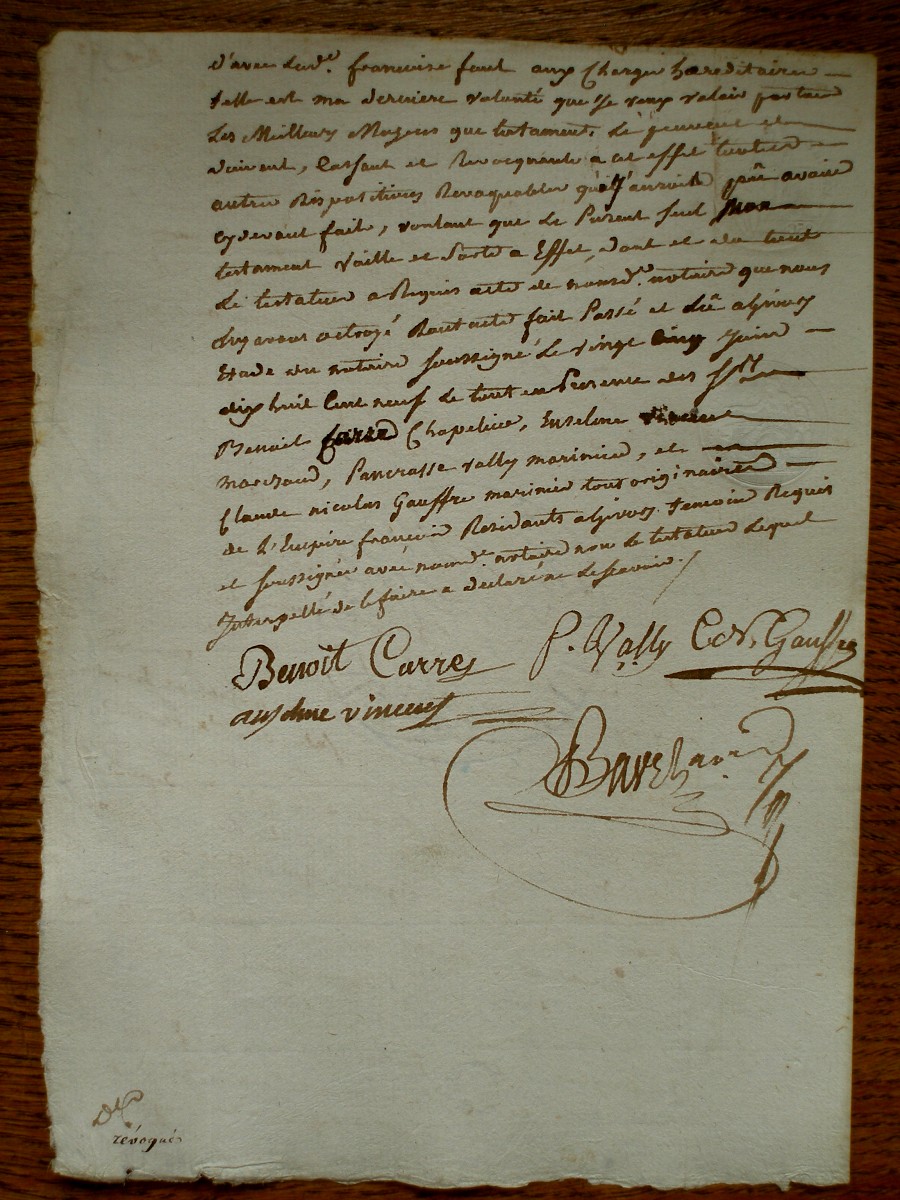 d'avec lad.e francoise feul aux Charges hereditaires
telle est ma derniere volonté que je veux valoir par tous
Les Meilleurs Moyens que testament Le peuvent et
doivent, Cassant et Revocquant a cet effet toutes
autres Dispositions Revoquables que j'aurois pû avoir
cydevant fait, voulant que Le Présent seul mon
testament vaille et sorte a Effet, dont et du tout
Le testateur a Requis acte de nousd.t notaire que nous
Luy avons octroyé Dont acte fait Passé et Lû a Givors
Etude du notaire soussigné Le vingt Cinq Juin
dix huit Cent neuf Le tout en Présence des Srs
Benoit Carre Chapelier, Enselme vincent
marchand, Pancrasse vally marinier, et
Claude nicolas Gauffre marinier tout originaires
de L'Empire francois Residants a Givors, temoins Requis
et soussignés avec nousd.t notaire non Le testateur Lequel
Interpellé de le faire a declaré ne Le scavoir./
Benoît Carre P. Vally C.N. Gauffre
anselme vincent
révoqué